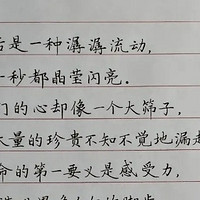 是一种潺潺流动，
一秒都晶莹闪亮。
们的心却像一个大筛子，
大量的珍贵不知不觉地漏
命的第一要义是感受力，